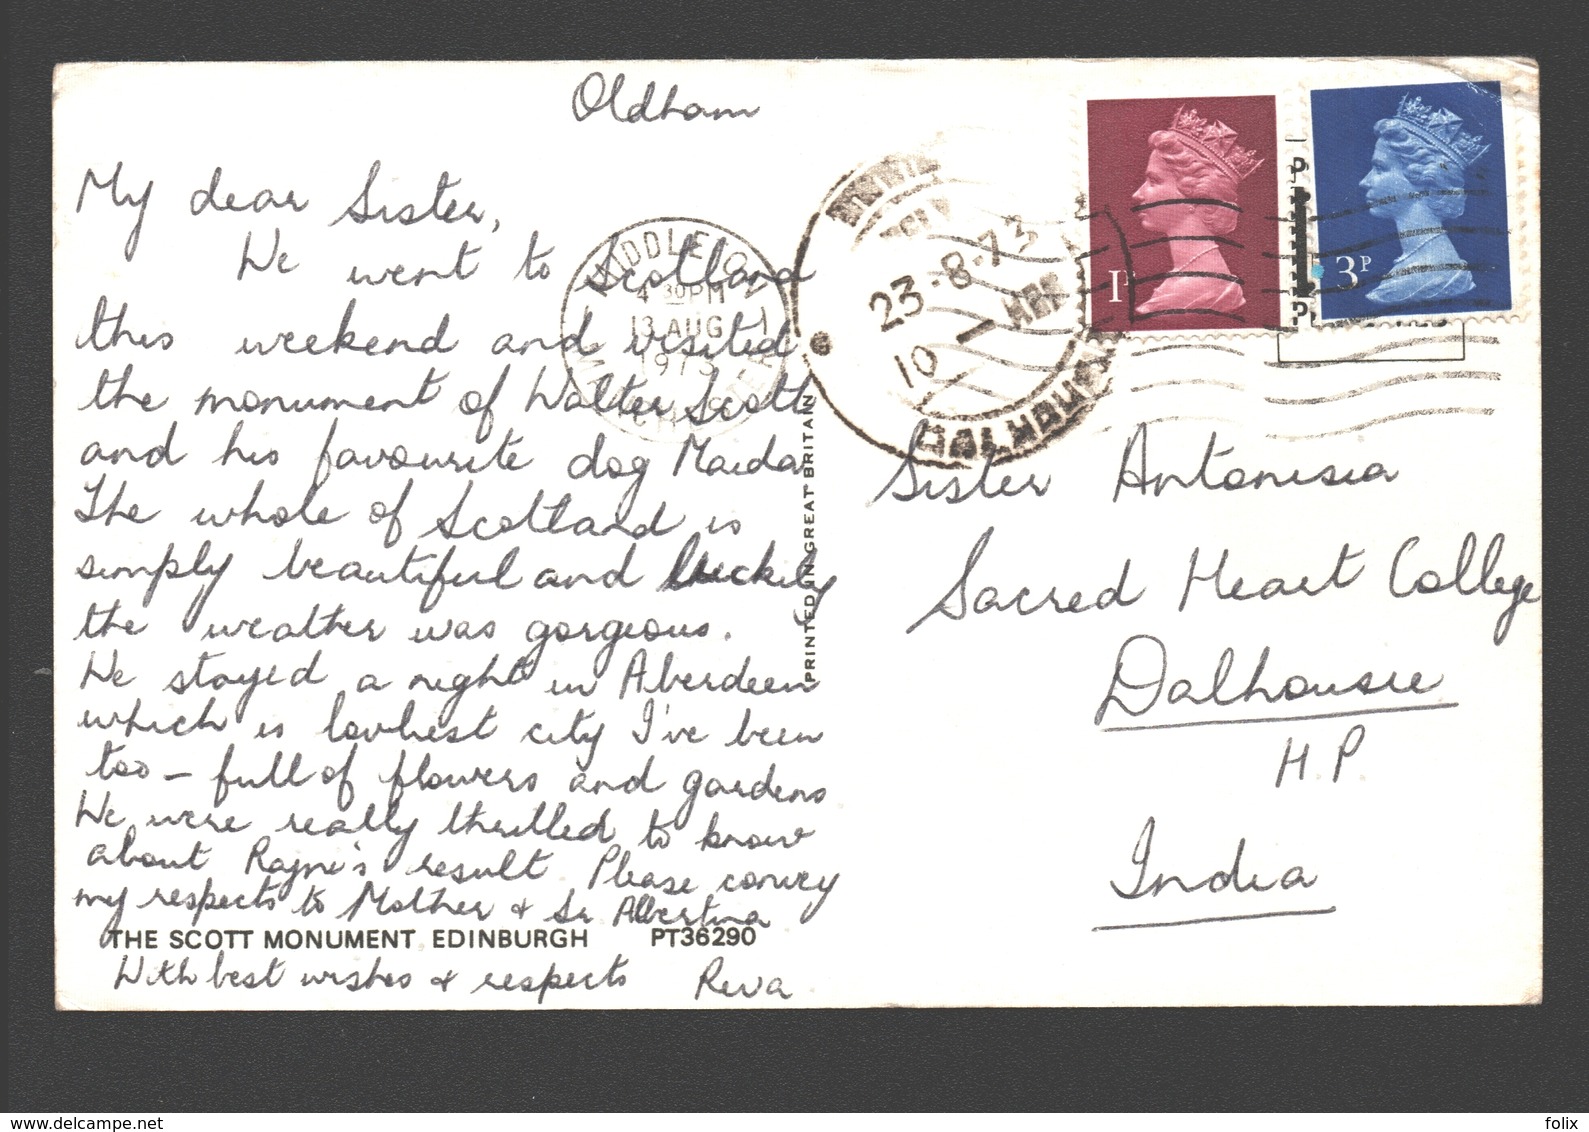 Oldham
My dear Sister,
We went to Scotland
this weekend and visited
the monument of Walter Scott
and his favourite dog Maida
The whole of Scotland is
simply beautiful and luckily
the weather was gorgeous.
We stayed a night in Aberdeen
which is lovliest city I've been
too - full of flowers and gardens
We were really thrilled to know
about Rajni's result. Please convey
my respects to Mother & Sr Albertina
THE SCOTT MONUMENT EDINBURGH PT36290
With best wishes & respects Reva
PRINTED IN GREAT BRITAIN
MIDDLETON
4 30PM
13 AUG
1973
MANCHESTER
23-8-73
10
1P
3P
Sister Antonisia
Sacred Heart College
Dalhousie
H.P.
India
delcampe.net
folix